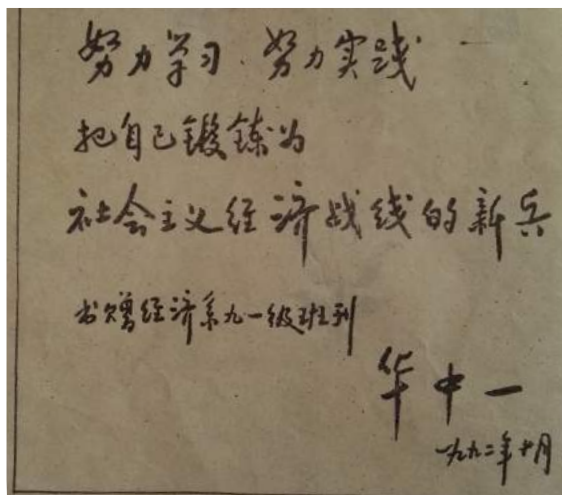 努力学习、努力实践
把自己锻炼为
社会主义经济战线的新兵
书赠经济系九一级班刊
华中一
一九九二年十月